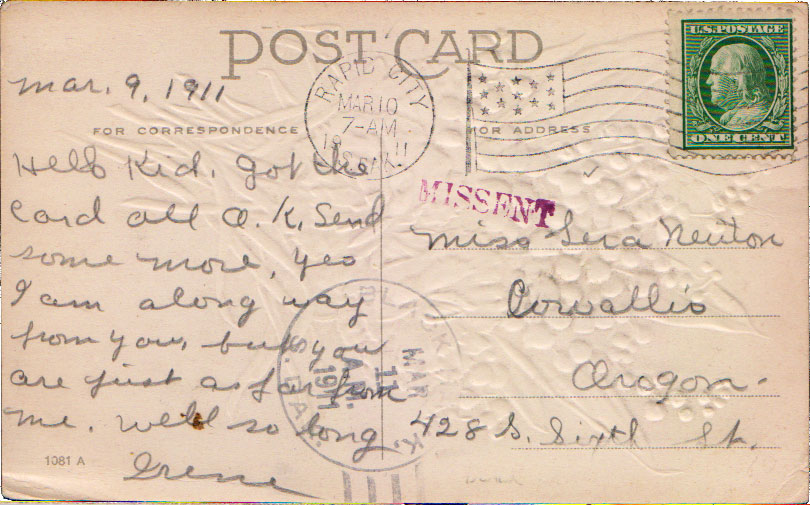 POST CARD
Mar. 9, 1911
RAPID CITY
MAR 10
7-AM
U.S. POSTAGE
ONE CENT
FOR CORRESPONDENCE
FOR ADDRESS
MISSENT
Hello Kid. got the
card all O.K. Send
some more, yes
I am along way
from you, but you
are just as far from
me. Well so long
Irene
Miss Lera Newton
Corvallis
Oregon.
428 S. Sixth St.
MAR
11
A.M.
1911
S. DAK.
1081 A